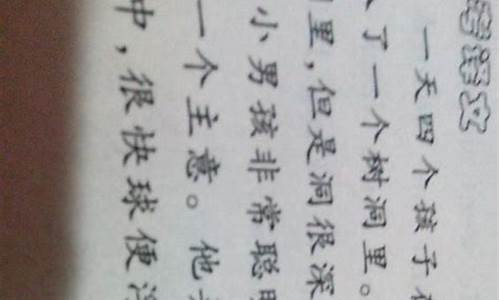 译文
一天四个孩子在
了一个树洞里。
里,但是洞很深
小男孩非常聪明
一个主意。他
中,很快球便浮